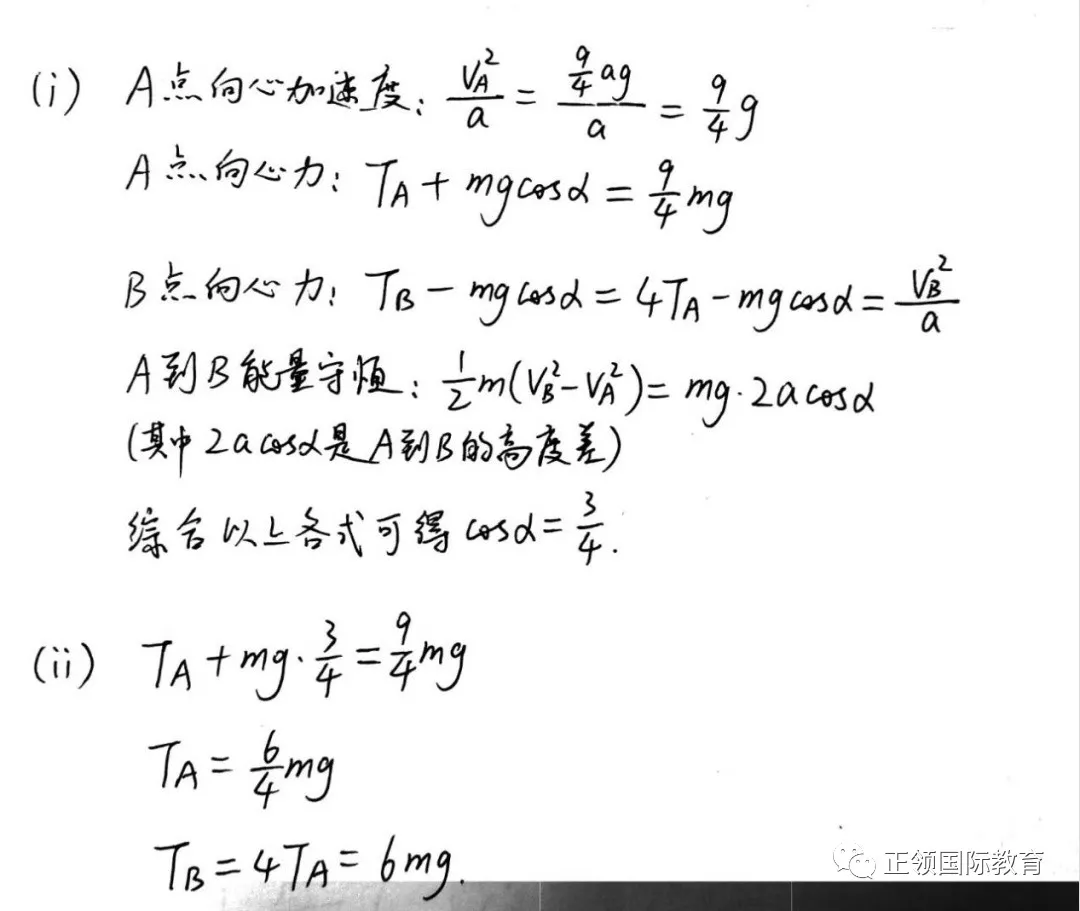 (i) A点向心加速度: V_A^2/a = (9/4 ag)/a = 9/4 g
A点向心力: T_A + mgcosα = 9/4 mg
B点向心力: T_B - mgcosα = 4T_A - mgcosα = V_B^2/a
A到B能量守恒: 1/2 m(V_B^2 - V_A^2) = mg·2acosα
(其中2acosα是A到B的高度差)
综合以上各式可得 cosα = 3/4.
(ii) T_A + mg·3/4 = 9/4 mg
T_A = 6/4 mg
T_B = 4T_A = 6mg.
正领国际教育